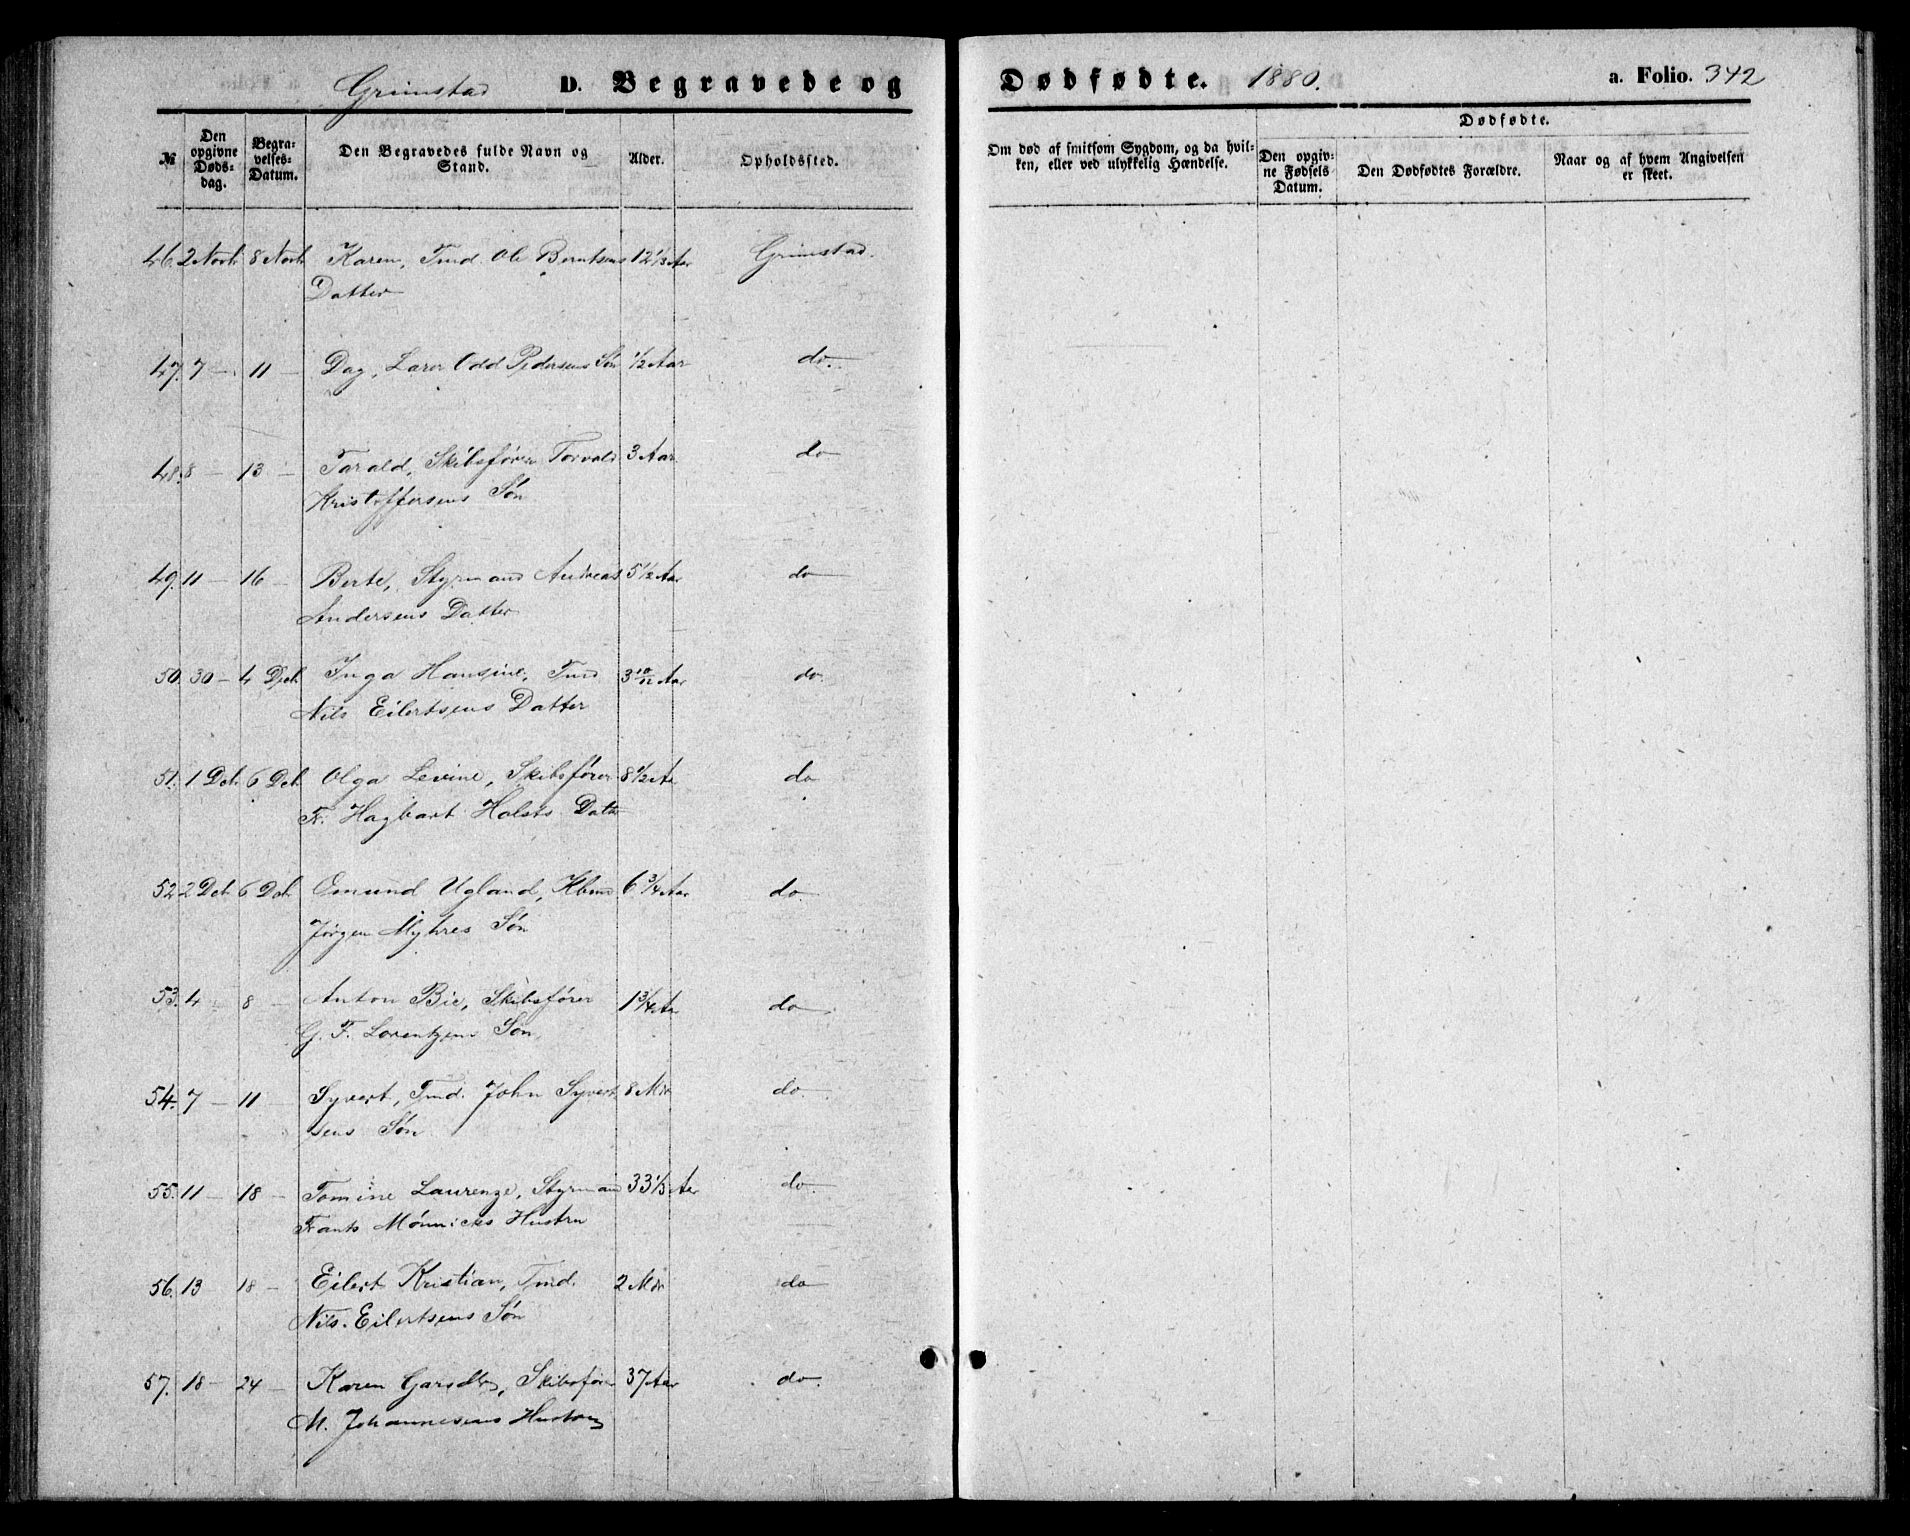 Grimstad D. Begravede og Dødfødte. 1880. a. Folio. 342
№ Den opgivne Dødsdag. Begravelses-Datum. Den Begravedes fulde Navn og Stand. Alder. Opholdssted. Om død af smitsom Sygdom, og da hvilken, eller ved ulykkelig Hændelse. Dødfødte. Den opgivne Fødsels Datum. Den Dødfødtes Forældre. Naar og af hvem Angivelsen er skeet.
46. 2 Novb. 8 Novb. Karen, Tmd. Ole Berntsens 12 1/3 Aar Grimstad.
Datter
47. 7 – 11 – Dag, Lærer Odd Pedersens Søn 1/2 Aar do.
48. 8 – 13 – Tarald, Skibsfører Torvald 3 Aar do
Kristoffersens Søn
49. 11 – 16 – Berte, Styrmand Andreas 5 1/2 Aar do
Andersens Datter
50. 30 – 4 Dcb. Inga Hansine, Tmd. 3 10/12 Aar do.
Nils Eilertsens Datter
51. 1 Dcb. 6 Dcb. Olga Levine, Skibsfører 8 1/2 Aa do
Fr. Hagbart Holsts Datt
52. 2 Dcb. 6 Dcb. Omund Ugland, Kbmd 6 3/4 Aar do.
Jørgen Myhres Søn
53. 4 – 8 – Anton Bie, Skibsfører 1 3/4 Aa do
G. F. Lorentzens Søn
54. 7 – 11 – Syvert, Tmd. John Syvert 8 Mdr do.
sens Søn
55. 11 – 18 – Tomine Laurenze, Styrmand 33 1/3 Aar do.
Frants Mønnichs Hustru
56. 13 18 – Eilert Kristian, Tmd. 2 Mdr do
Nils Eilertsens Søn
57. 18 – 24 – Karen, Skibsfører 37 Aar do.
M. Johannesens Hustru